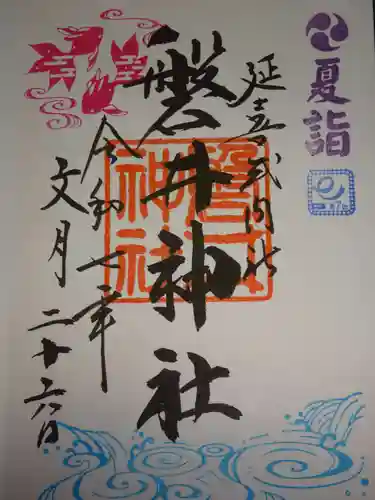 夏詣
延喜式内社
磐井神社
令和七年
文月二十六日
磐井神社